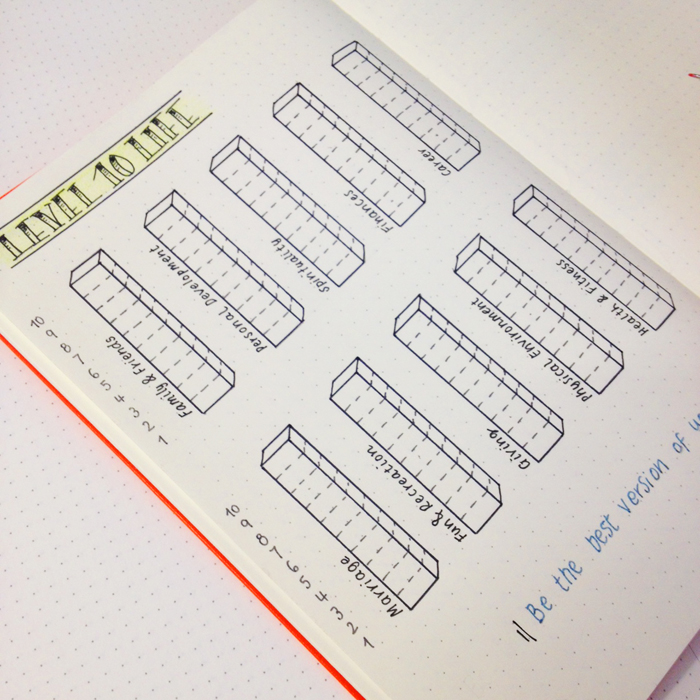 LEVEL 10 LIFE
10
9
8
7
6
5
4
3
2
1
Family & Friends
Personal Development
Spirituality
Finances
Career
10
9
8
7
6
5
4
3
2
1
Marriage
Fun & Recreation
Giving
Physical Environment
Health & Fitness
" Be the best version of